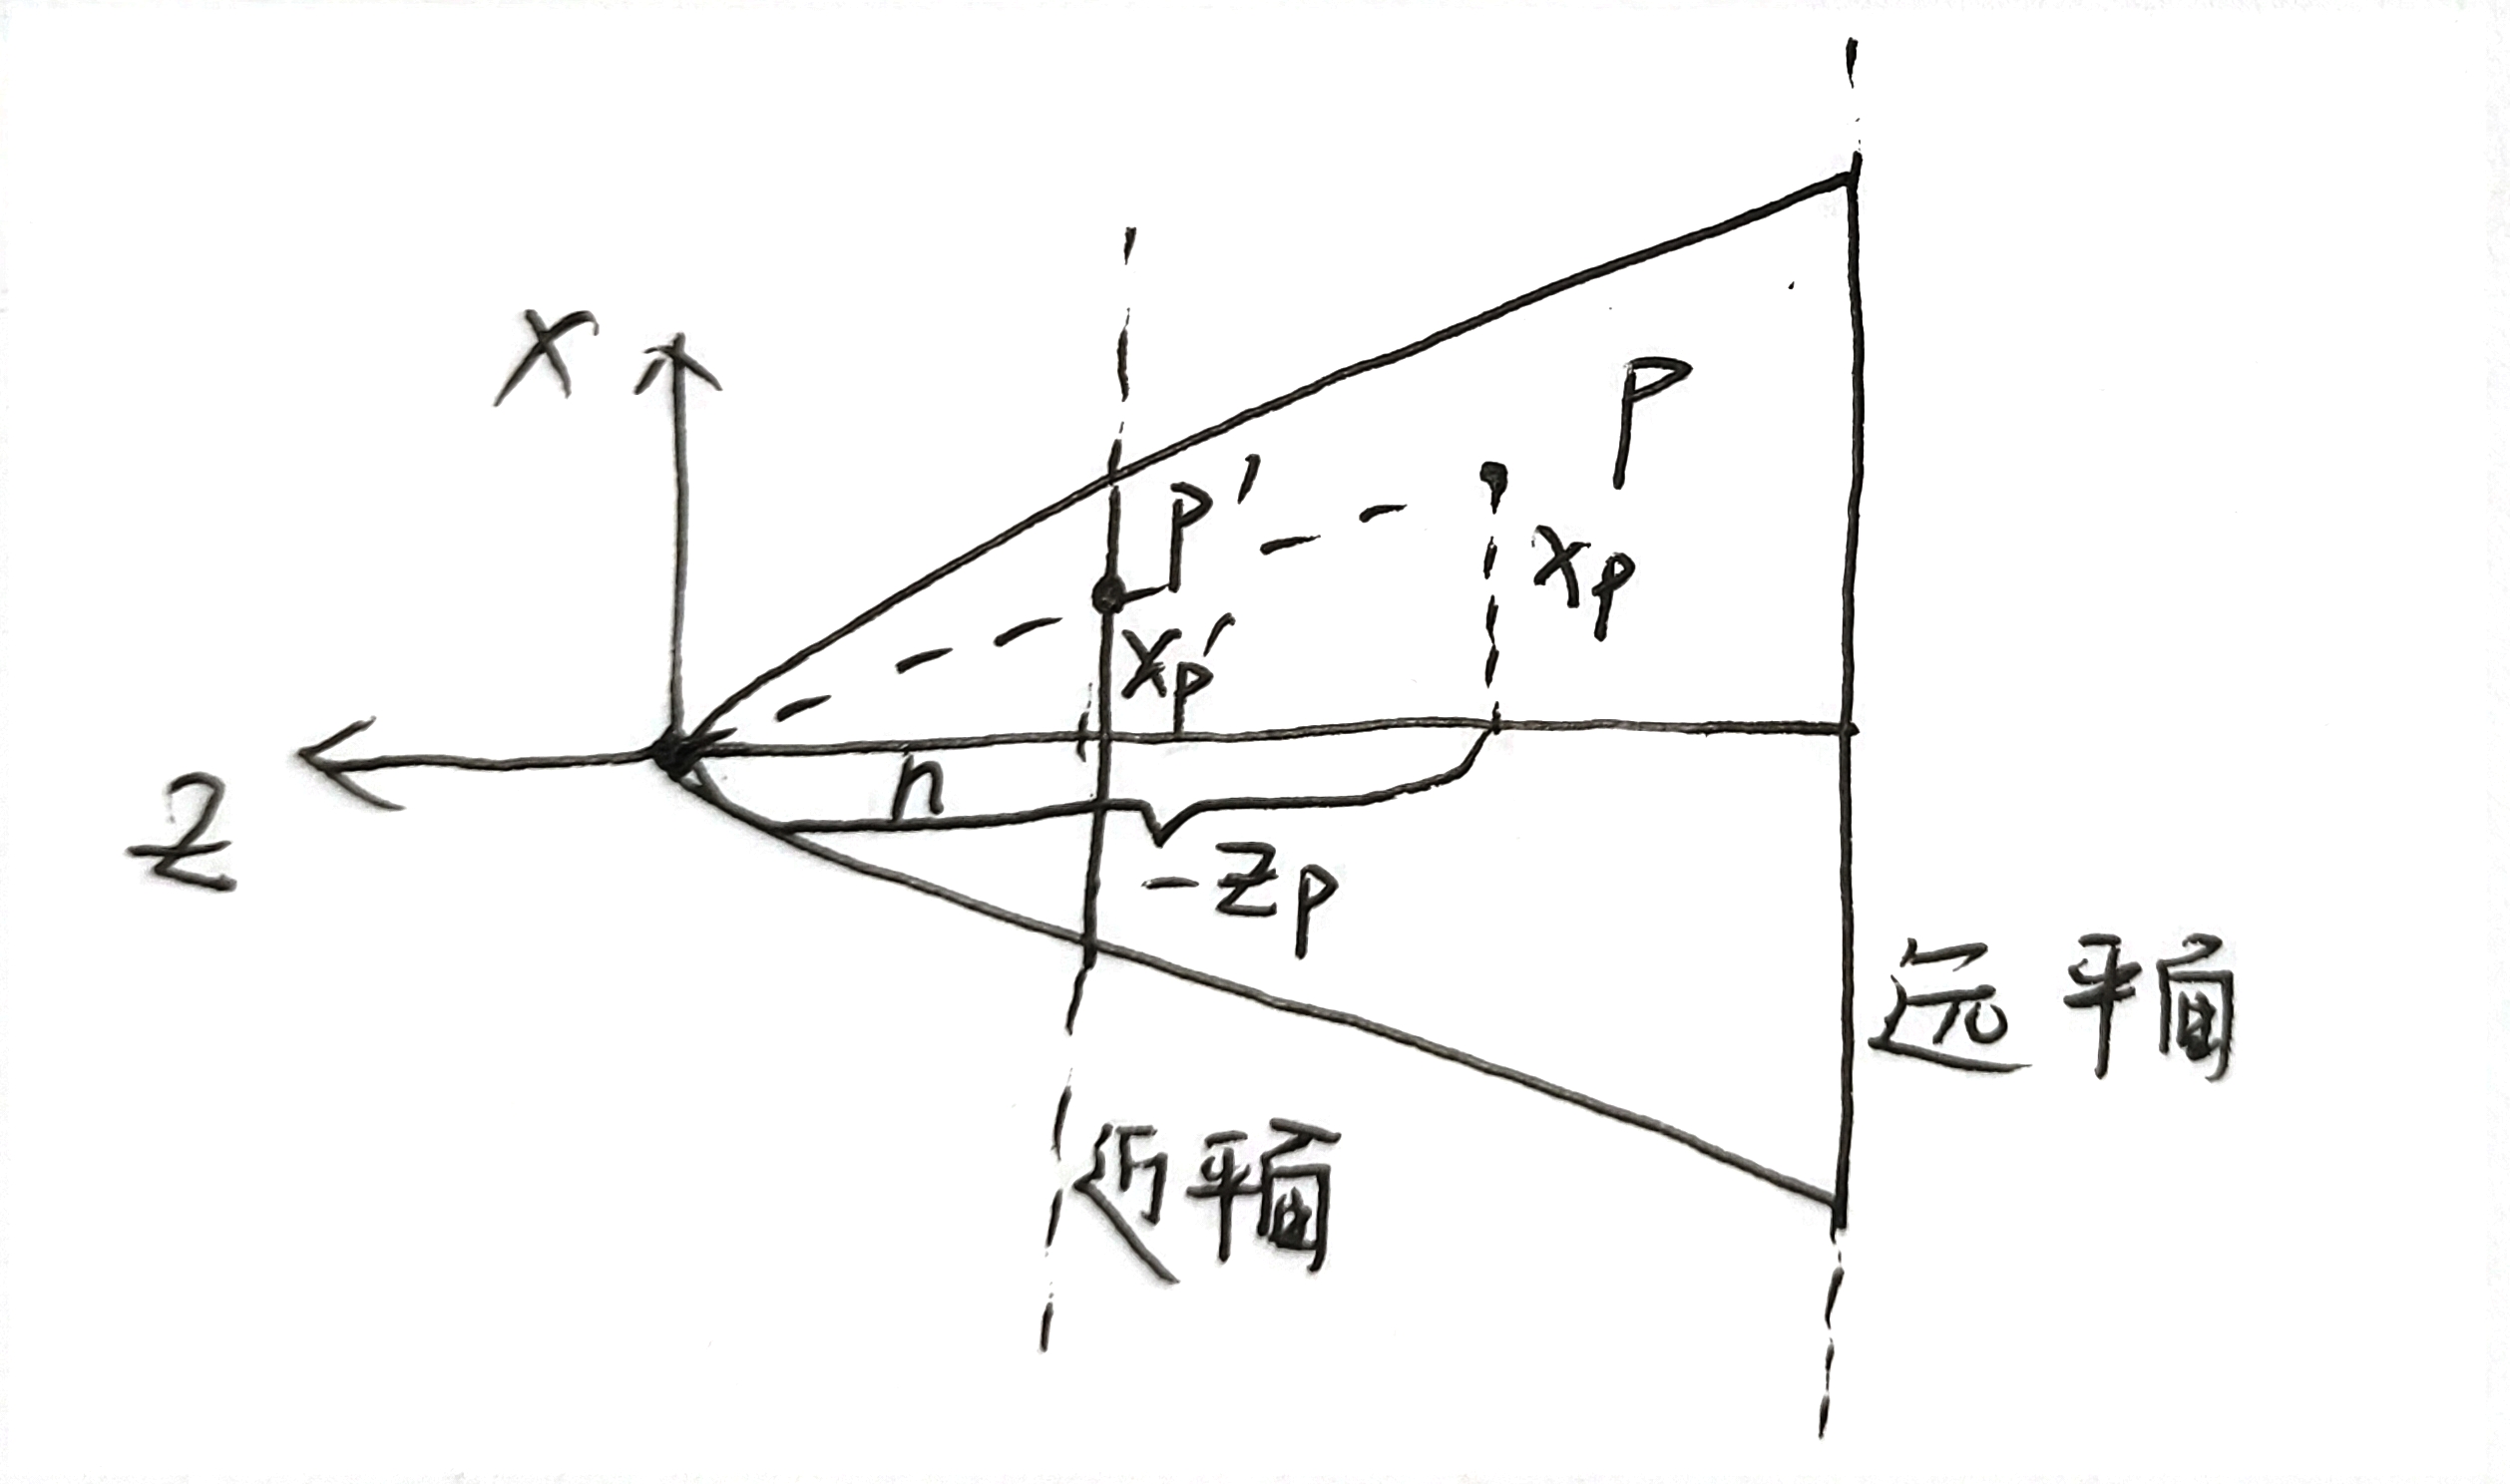 X
P
P'
xp
xp'
n
Z
-zp
远平面
近平面